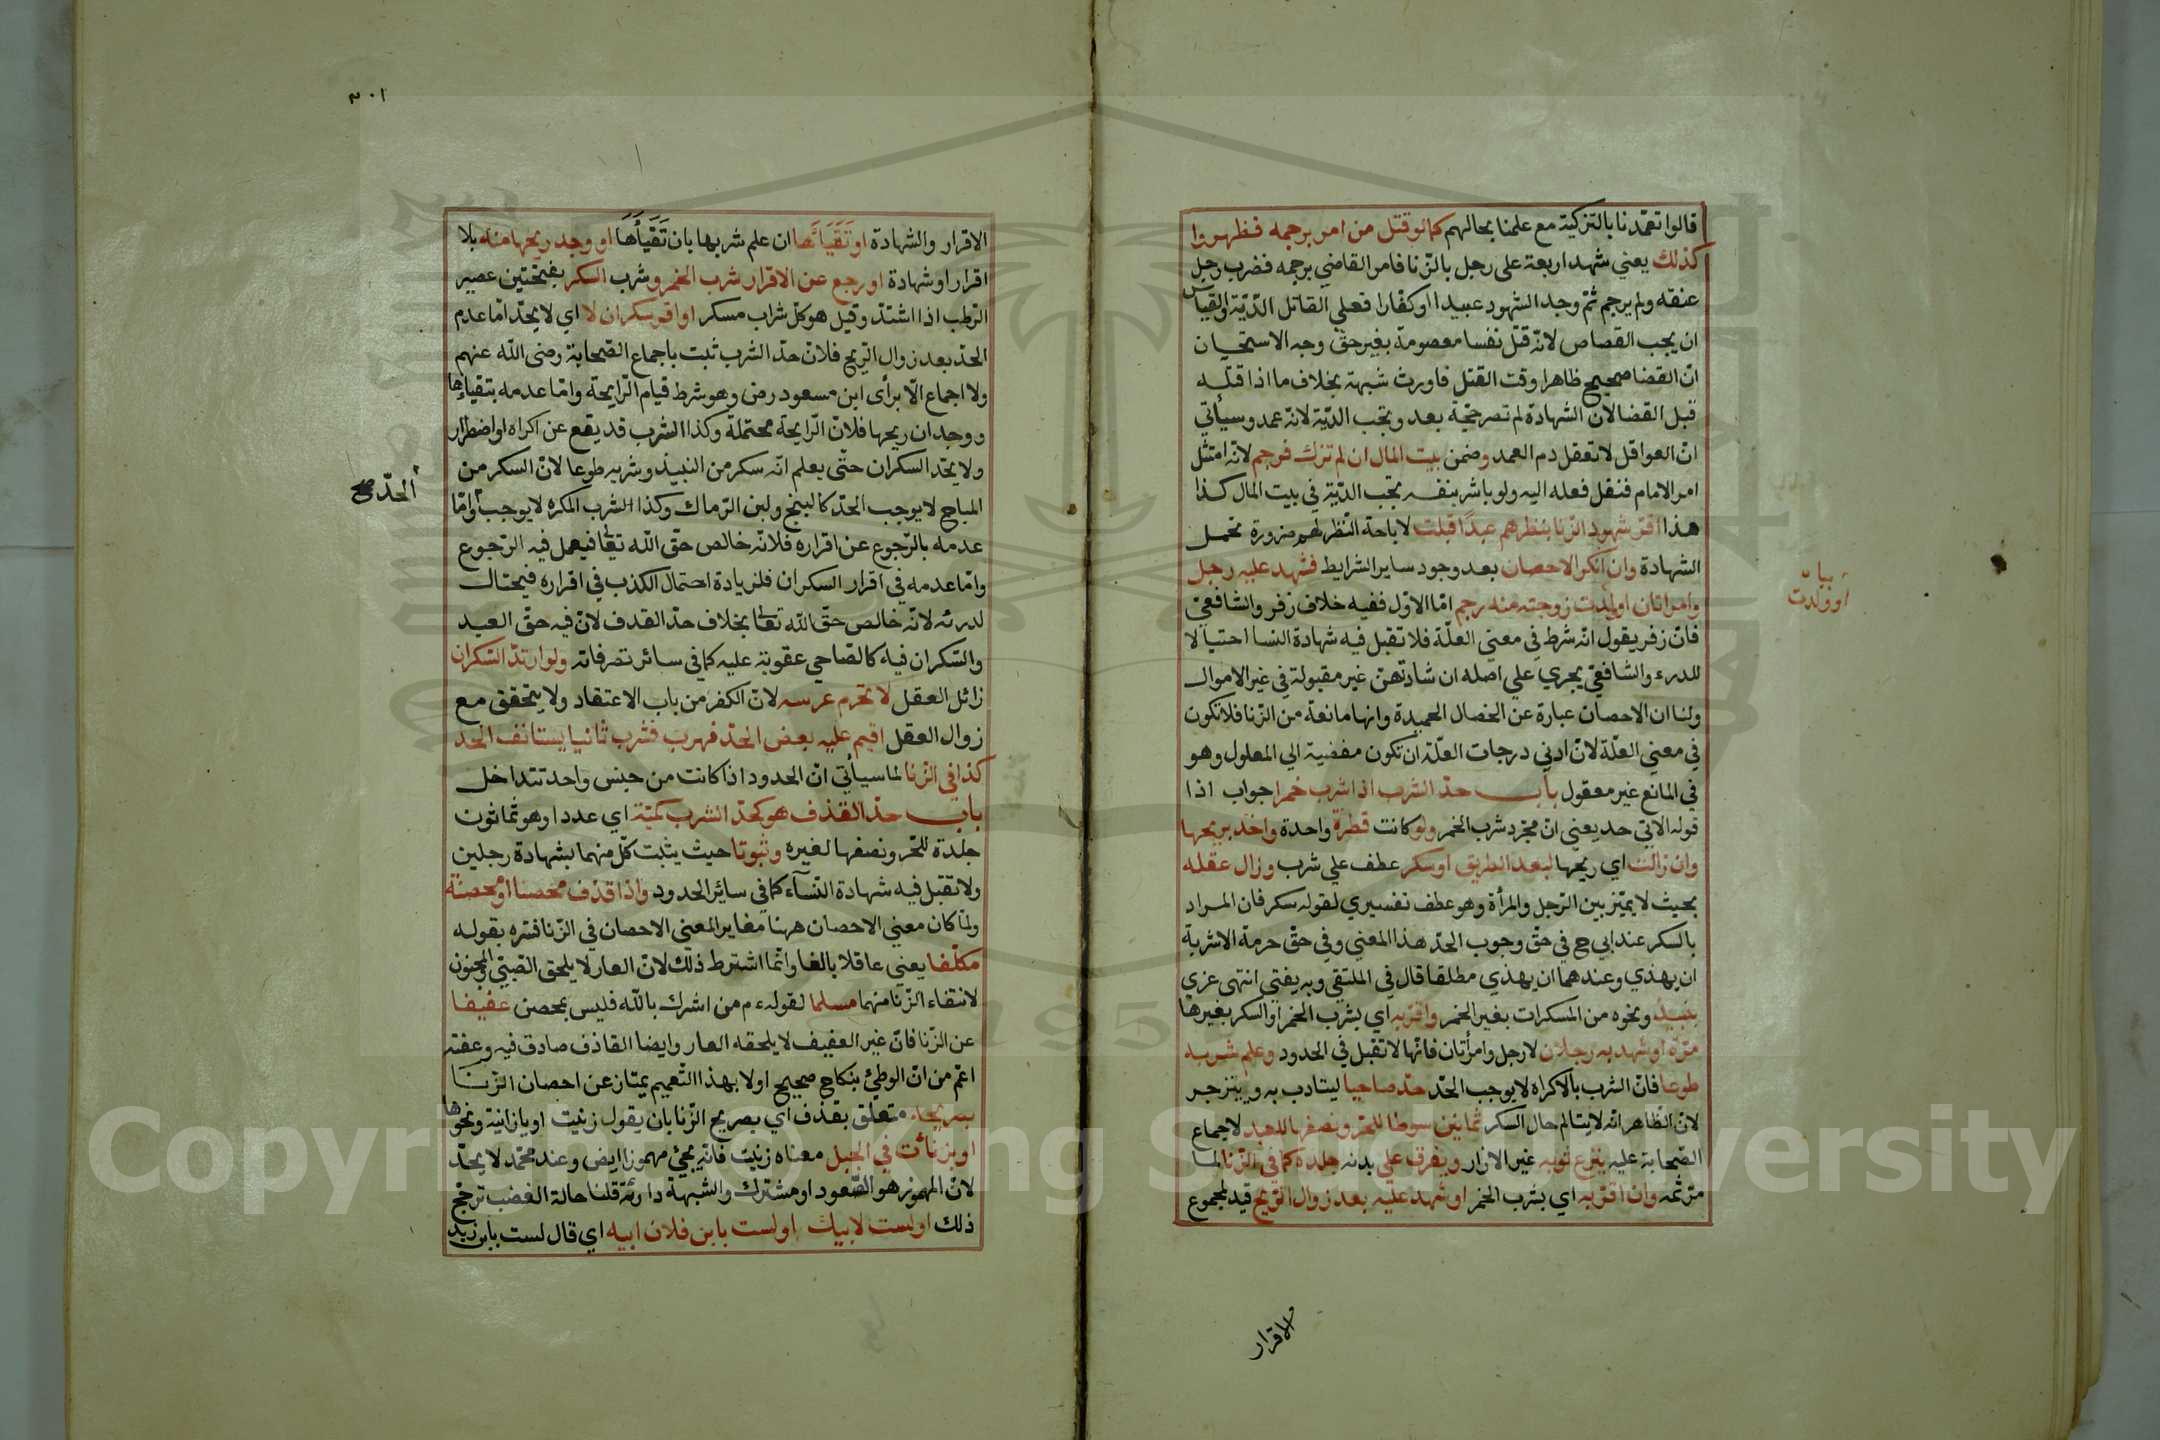 قالوا تعمّدنا بالتزكية مع علمنا بحالهم كما لو قتل من امر برجمه فظهروا
كذلك يعني شهد اربعة على رجل بالزنا فامر القاضي برجمه فضرب رجل
عنقه ولم يرجم ثمّ وجد الشهود عبيدا او كفّارا فعلى القاتل الدّيّة والقياس
ان يجب القصاص لانّه قتل نفسا معصومة بغير حقّ وجه الاستحسان
انّ القضا صحيح ظاهرا وقت القتل فاورث شبهة بخلاف ما اذا قتله
قبل القضا لانّ الشهادة لم تصر حجّة بعد وتجب الديّة لانّه عمد وسيأتي
انّ العواقل لا تعقل دم العمد وضمن بيت المال ان لم تزك فرجم لانّه امتثل
امر الامام فنقل فعله اليه ولو باشر بنفسه تجب الديّة في بيت المال كذا
هذا اقرّ شهود الزنا بنظرهم عمدًا قبلت لاباحة النّظر لهم ضرورة تحمل
الشهادة وان انكر الاحصان بعد وجود ساير الشرايط فشهد عليه رجل
وامراتان او ولدت زوجته منه رجم امّا الاوّل ففيه خلاف زفر والشافعيّ
فانّ زفر يقول انّه شرط في معني العلّة فلا تقبل فيه شهادة النسا احتيالا
للدرء والشافعيّ يجري علي اصله ان شهادتهنّ غير مقبولة في غير الاموال
ولنا ان الاحصان عبارة عن الخصال الحميدة وانها مانعة من الزنا فلا تكون
في معني العلّة لانّ ادني درجات العلّة ان تكون مفضية الي المعلول وهو
في المانع غير معقول باب حدّ الشرب اذا شرب خمرا جواب اذا
قوله الاتي حد يعني انّ مجرّد شرب الخمر ولو كانت قطرة واحدة واخذ بريحها
وان زالت اي ريحها لبعد الطريق او سكر عطف علي شرب وزال عقله
بحيث لا يميّز بين الرّجل والمرأة وهو عطف تفسيري لقوله سكر فان المراد
بالسكر عند ابي ح في حقّ وجوب الحدّ هذا المعني وفي حقّ حرمة الاشربة
ان يهذي وعندهما ان يهذي مطلقا قال في الملتقي وبه يفتي انتهي عزي
بنبيذ ونحوه من المسكرات بغير الخمر واقرّ به اي بشرب الخمر او السكر بغيرها
مرّة او شهد به رجلان لا رجل وامرأتان فانّها لا تقبل في الحدود وعلم شربه
طوعا فانّ الشرب بالاكراه لا يوجب الحدّ حدّ صاحيا ليتادب به وينزجر
لانّ الظاهر انّه لا يتألم حال السكر ثمانين سوطا للحرّ ونصفها للعبد لاجماع
الصّحابة عليه ينزع ثوبه غير الازار ويفرق علي بدنه جلده كما في الزنا لما
مرّ ثمّه وان اقرّ به اي بشرب الخمر او شهد عليه بعد زوال الرّيح قيد لمجموع
او ولدت
بيان
الاقرار
٣٠١
الاقرار والشهادة او تَقَيَّأَهَا ان علم شربها بان تَقَيَّأَهَا او وجد ريحها منه بلا
اقرار او شهادة او رجع عن الاقرار شرب الخمر وشرب السكر بفتحتين عصير
الرّطب اذا اشتدّ وقيل هو كلّ شراب مسكر او اقر سكران لا اي لا يحدّ امّا عدم
الحدّ بعد زوال الرّيح فلانّ حدّ الشرب ثبت باجماع الصّحابة رضى الله عنهم
ولا اجماع الّا برأى ابن مسعود رض وهو شرط قيام الرّايحة وامّا عدمه بتقياءها
ووجدان ريحها فلانّ الرّايحة محتملة وكذا الشرب قد يقع عن اكراه او اضطرار
ولا يحدّ السكران حتّى يعلم انّه سكر من النبيذ وشربه طوعا لانّ السكر من
المباح لا يوجب الحدّ كالبنج ولبن الرّماك وكذا الشرب المكره لا يوجب وامّا
عدمه بالرّجوع عن اقراره فلانّه خالص حقّ الله تعالى فيعمل فيه الرّجوع
وامّا عدمه في اقرار السكران فلزيادة احتمال الكذب في اقراره فيحتال
لدرئه لانّه خالص حقّ الله تعالى بخلاف حدّ القذف لانّ فيه حقّ العبد
والسّكران فيه كالصّاحي عقوبة عليه كما في سائر تصرفاته ولو ارتدّ السّكران
زائل العقل لا تحرم عرسه لانّ الكفر من باب الاعتقاد ولا يتحقق مع
زوال العقل اقيم عليه بعض الحدّ فهرب فشرب ثانيا يستانف الحدّ
كذا في الزّنا لما سيأتي انّ الحدود اذا كانت من جنس واحد تتداخل
باب حدّ القذف هو كحدّ الشرب كميّة اي عددا وهو ثمانون
جلدة للحّر ونصفها لغيره وثبوتا حيث يثبت كلّ منهما بشهادة رجلين
ولا تقبل فيه شهادة النّسآء كما في سائر الحدود واذا قذف محصنا او محصنة
ولمّا كان معني الاحصان ههنا مغاير المعني الاحصان في الزّنا فسّره بقوله
مكلّفا يعني عاقلا بالغا وانّما اشترط ذلك لانّ العار لا يلحق الصّبيّ والمجنون
لانتفاء الزّنا منهما مسلما لقوله ءم من اشرك بالله فليس بمحصن عفيفا
عن الزّنا فانّ غير العفيف لا يلحقه العار وايضا القاذف صادق فيه وعفته
اعمّ من انّ الوطئ بنكاح صحيح اولا بهذا التّعميم يمتاز عن احصان الزّنا
بصريحه متعلّق بقذف اي بصريح الزّنا بان يقول زنيت او يا زانية ونحوها
او بزنأت في الجبل معناه زنيت فانّه يجئ مهموزا ايض وعند محمّد لا يحدّ
لانّ المهموز هو الصّعود او مشترك والشبهة دارئة قلنا حالة الغضب ترجّح
ذلك او لست لابيك او لست بابن فلان ابيه اي قال لست بابن زيد
الحدّ صح
Copyright © King Saud University
1957